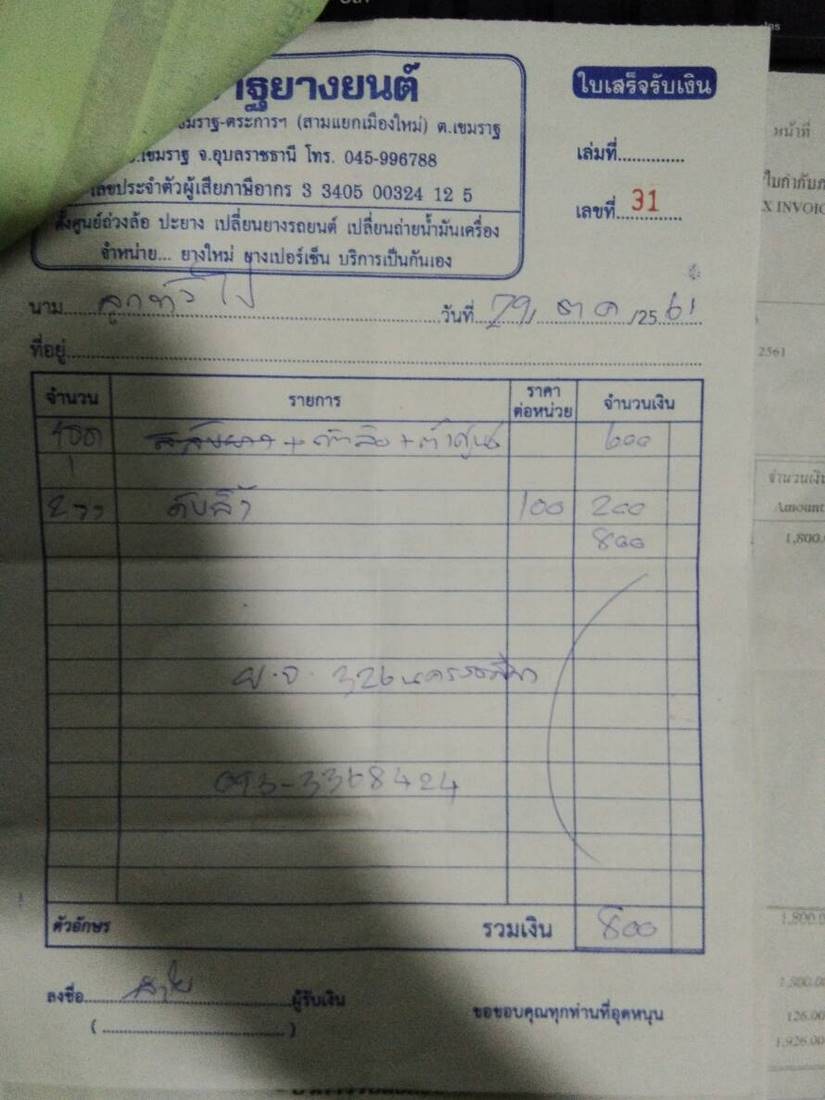 ฐยางยนต์
ใบเสร็จรับเงิน
มราฐ-ตระการฯ (สามแยกเมืองใหม่) ต.เขมราฐ
อ.เขมราฐ จ.อุบลราชธานี โทร. 045-996788
เลขประจำตัวผู้เสียภาษีอากร 3 3405 00324 12 5
เล่มที่
เลขที่ 31
ตั้งศูนย์ถ่วงล้อ ปะยาง เปลี่ยนยางรถยนต์ เปลี่ยนถ่ายน้ำมันเครื่อง
จำหน่าย... ยางใหม่ ยางเปอร์เซ็น บริการเป็นกันเอง
นาม ลูกทั่วไป วันที่ 29/ ตค /25 61
ที่อยู่
จำนวน รายการ ราคาต่อหน่วย จำนวนเงิน
600
1
100 200
800
095-3368424
ตัวอักษร รวมเงิน 800
ลงชื่อ ผู้รับเงิน
ขอขอบคุณทุกท่านที่อุดหนุน
( )
หน้าที่
ใบกำกับภ
X INVOIC
2561
จำนวนเงิน
Amount
1,800.
1,800.0
1,800.0
126.00
1,926.00